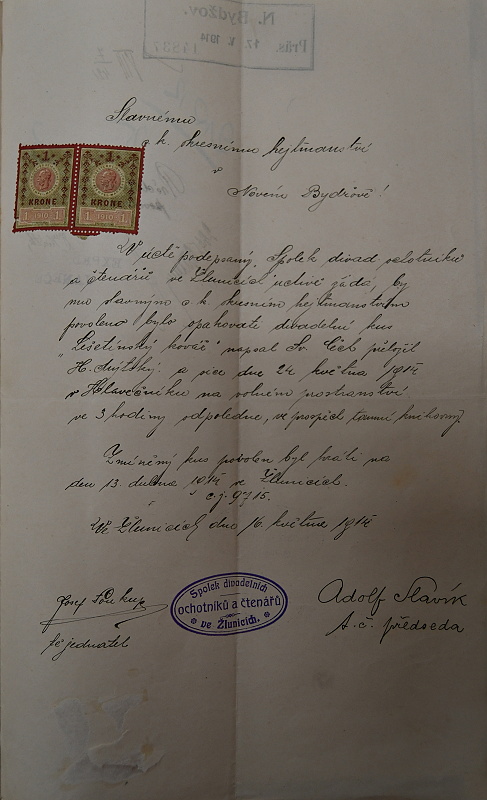 N. Bydžov.
Präs. 17. V. 1914 11337
Slavnému
c. k. okresnímu hejtmanství
v
Novém Bydžově!
1 1
KRONE KRONE
1 1910 1 1 1910 1
V úctě podepsaný „Spolek divad. ochotníků
a čtenářů ve Žlunicích" uctivě žádá, by
mu slavným c. k. okresním hejtmanstvím
povoleno bylo opakovati divadelní kus
„Lešetínský kovář" napsal Sv. Čech přeložil
H. a sice dne 24. května 1914
v Hlavečníku na volném prostranství
ve 3 hodiny odpoledne, ve prospěch tamní knihovny.
Zmíněný kus povolen byl hráti na
den 13. dubna 1914 ve Žlunicích.
č.j. 9715.
Ve Žlunicích dne 16. května 1914
Josef Soukup
jednatel
Spolek divadelních
ochotníků a čtenářů
ve Žlunicích.
Adolf Slavík
t. č. předseda